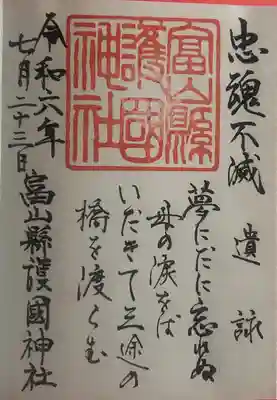 忠魂不滅
遺詠
夢にだに忘れぬ
母の涙をば
いだきて三途の
橋を渡らむ
富山縣
護國
神社
富山縣護國神社
令和六年
七月二十三日